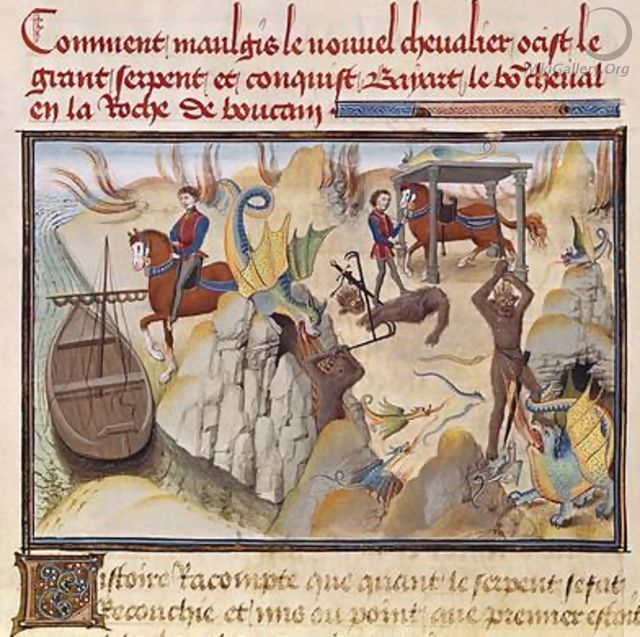 Comment maulgis le nouuel cheualier ocist le
grant serpent et conquist Bayart le bõ cheual
en la Roche de boucam
WikiGallery.Org
istoire Racompte que quant le serpent se fut
Recouchie et mis ou point que premier estoit